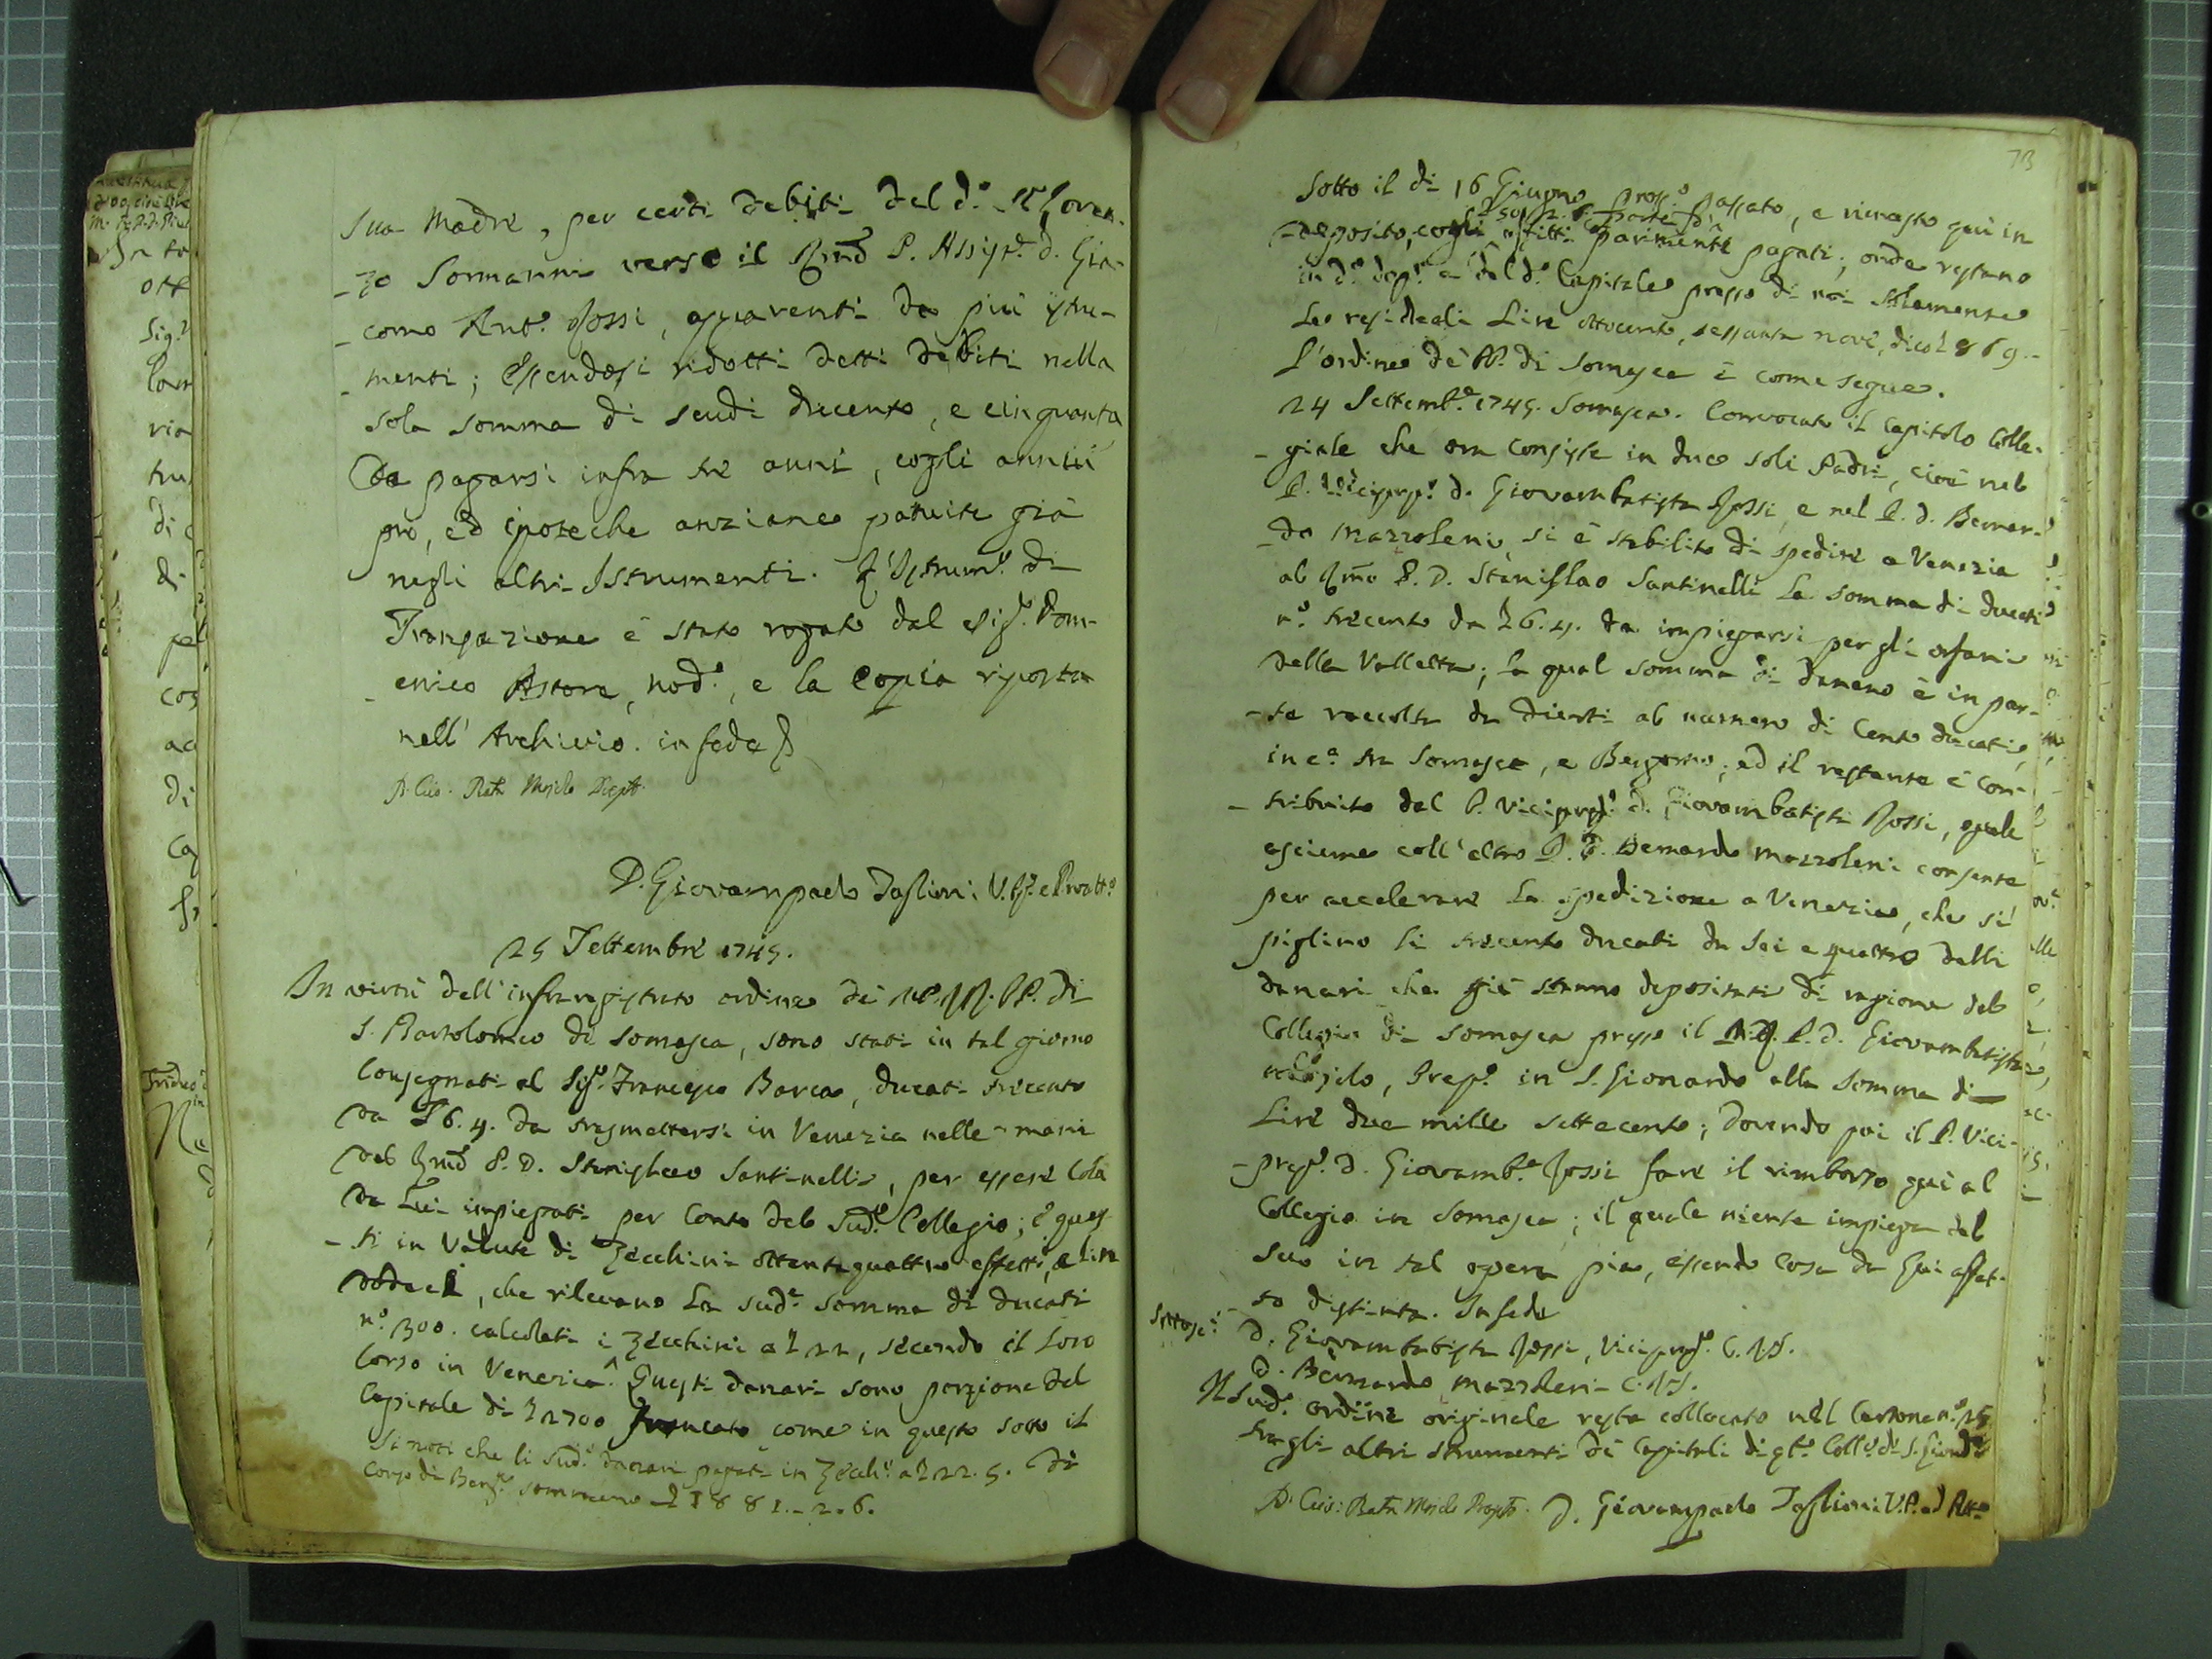 Sua Madre, per certi debiti del d.º Sr Loren-
-zo Sormanni verso il Rmo P. Assist.e d. Gia-
-como Ant.º Rossi, apparenti da più istru-
-menti; essendosi ridotti detti debiti nella
sola somma di scudi ducento, e cinquanta
da pagarsi infra tre anni, cogli annui
pro, ed ipoteche anziane pattuite già
negli altri Istrumenti. L'Istrum.º di
Transazione è stato rogato dal Sig.r Dom-
-enico Astore, nod.º, e la copia riposta
nell' Archivio. in fede
D. Gio. Batta Mojolo Prep.to
D. Giovanpaolo Taglioni V.P. e Proatt.º
25 Settembre 1745.
In virtù dell'infraregistrato ordine de' MM. RR. PP. di
S. Bartolomeo di Somasca, sono stati in tal giorno
Consegnati al Sig.r Francesco Barca, ducati trecento
da £ 6.4. da trasmettersi in Venezia nelle mani
del Rmo P. D. Stanislao Santinelli, per essere colà
da Lui impiegati per Conto del Sud.º Collegio; e ques-
-ti in Valute di Zecchini ottantaquattro effetti, e lire
dodeci, che rilevano la sud.a somma di ducati
n.º 300. calcolati i Zecchini a £ 22, secondo il loro
Corso in Venezia. Questi danari sono porzione del
Capitale di £ 2700 francato come in questo sotto il
Si noti che li Sud.i danari pagati in Zecch.i a £ 22. 5. di
Corso di Berg.mo sommano £ 1881.-2.6.
73
Sotto il di 16 Giugno pross.º passato, e rimasto qui in
deposito, cogli affitti parimente pagati; onde restano
in d.º dep.º e del d.º Capitale presso di noi solamente
le residuali Lire ottocento, sessanta nove, dico £ 869.-
L'ordine de' PP. di Somasca è come segue.
24 Settemb.e 1745. Somasca. Convocato il Capitolo Colle-
-giale che ora consiste in due soli Padri, cioè nel
P. Viceprep.º d. Giovambatista Rossi, e nel P. d. Bernar-
-do Mazzoleni, si è stabilito di spedire a Venezia
al Rmo P. D. Stanislao Santinelli la somma di ducati
n.º trecento da £ 6.4. da impiegarsi per gli orfani
della Valletta; la qual somma di danaro è in par-
-te raccolta da Divoti al numero di Cento ducati,
in c.a tra Somasca, e Bergamo; ed il restante è con-
-tribuito dal P. Viceprep.º d. Giovambatista Rossi, quale
assieme coll'altro P. D. Bernardo Mazzoleni consente
per accelerare la spedizione a Venezia, che si
piglino li trecento ducati da sei e quattro dalli
danari che già stanno depositati di ragione del
Collegio di Somasca presso il M.R. P. d. Giovambatista
Mojolo, Prep.º in S. Gionardo alla somma di
Lire due mille settecento; dovendo poi il P. Vice-
-prep.º d. Giovamb.a Rossi fare il rimborso qui al
Collegio in Somasca; il quale niente impiega del
suo in tal opera pia, essendo Cosa da Lui affat-
-to distinta. In fede
Sottosc.i D. Giovambatista Rossi, Viceprep.º C.R.S.
D. Bernardo Mazzoleni C.R.S.
Il Sud.º ordine originale resta collocato nel Cartone n.º
tra gli altri strumenti de' Capitali di q.to Coll.º di S. Gion.do
D. Gio: Batta Mojolo Prep.to D. Giovanpaolo Taglioni V.P. ed Att.º